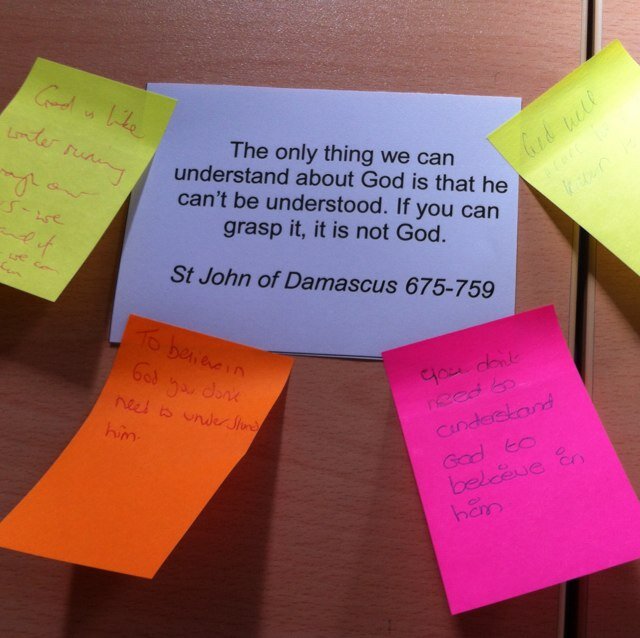 The only thing we can
understand about God is that he
can't be understood. If you can
grasp it, it is not God.
St John of Damascus 675-759
God is like
water running
our
we
God
To believe in
God you dont
need to understand
him.
you don't
need to
understand
God to
believe in
him